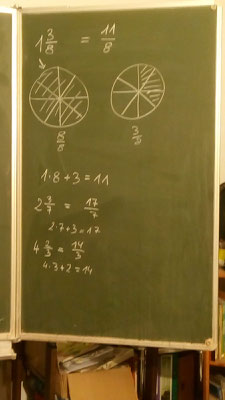 1 3/8 = 11/8
8/8 3/8
1·8+3=11
2 3/7 = 17/7
2·7+3=17
4 2/3 = 14/3
4·3+2=14